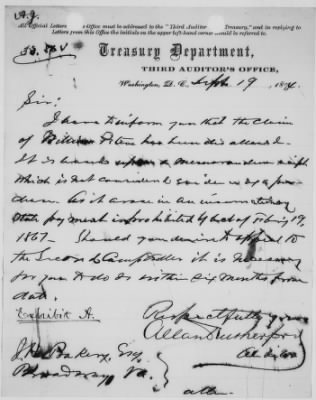 All Official Letters Office must be addressed to the "Third Auditor Treasury," and in replying to
Letters from this Office the initials on the upper left-hand corner should be referred to.
Treasury Department,
THIRD AUDITOR'S OFFICE,
Washington, D. C. Sept 19, 187
Sir:
I have to inform you that the Claim
of William Peters has been disallowed.
It is based upon a memorandum receipt
which is not considered evidence of a
As it arose in an insurrectionary
State payment is prohibited by act of Feby 19,
1867 — Should you desire to appeal to
the Second Comptroller it is necessary
for you to do so within six months from
date.
Respectfully yours
Exhibit A.
Allan Rutherford
Auditor
Esq
Broadway, Va.